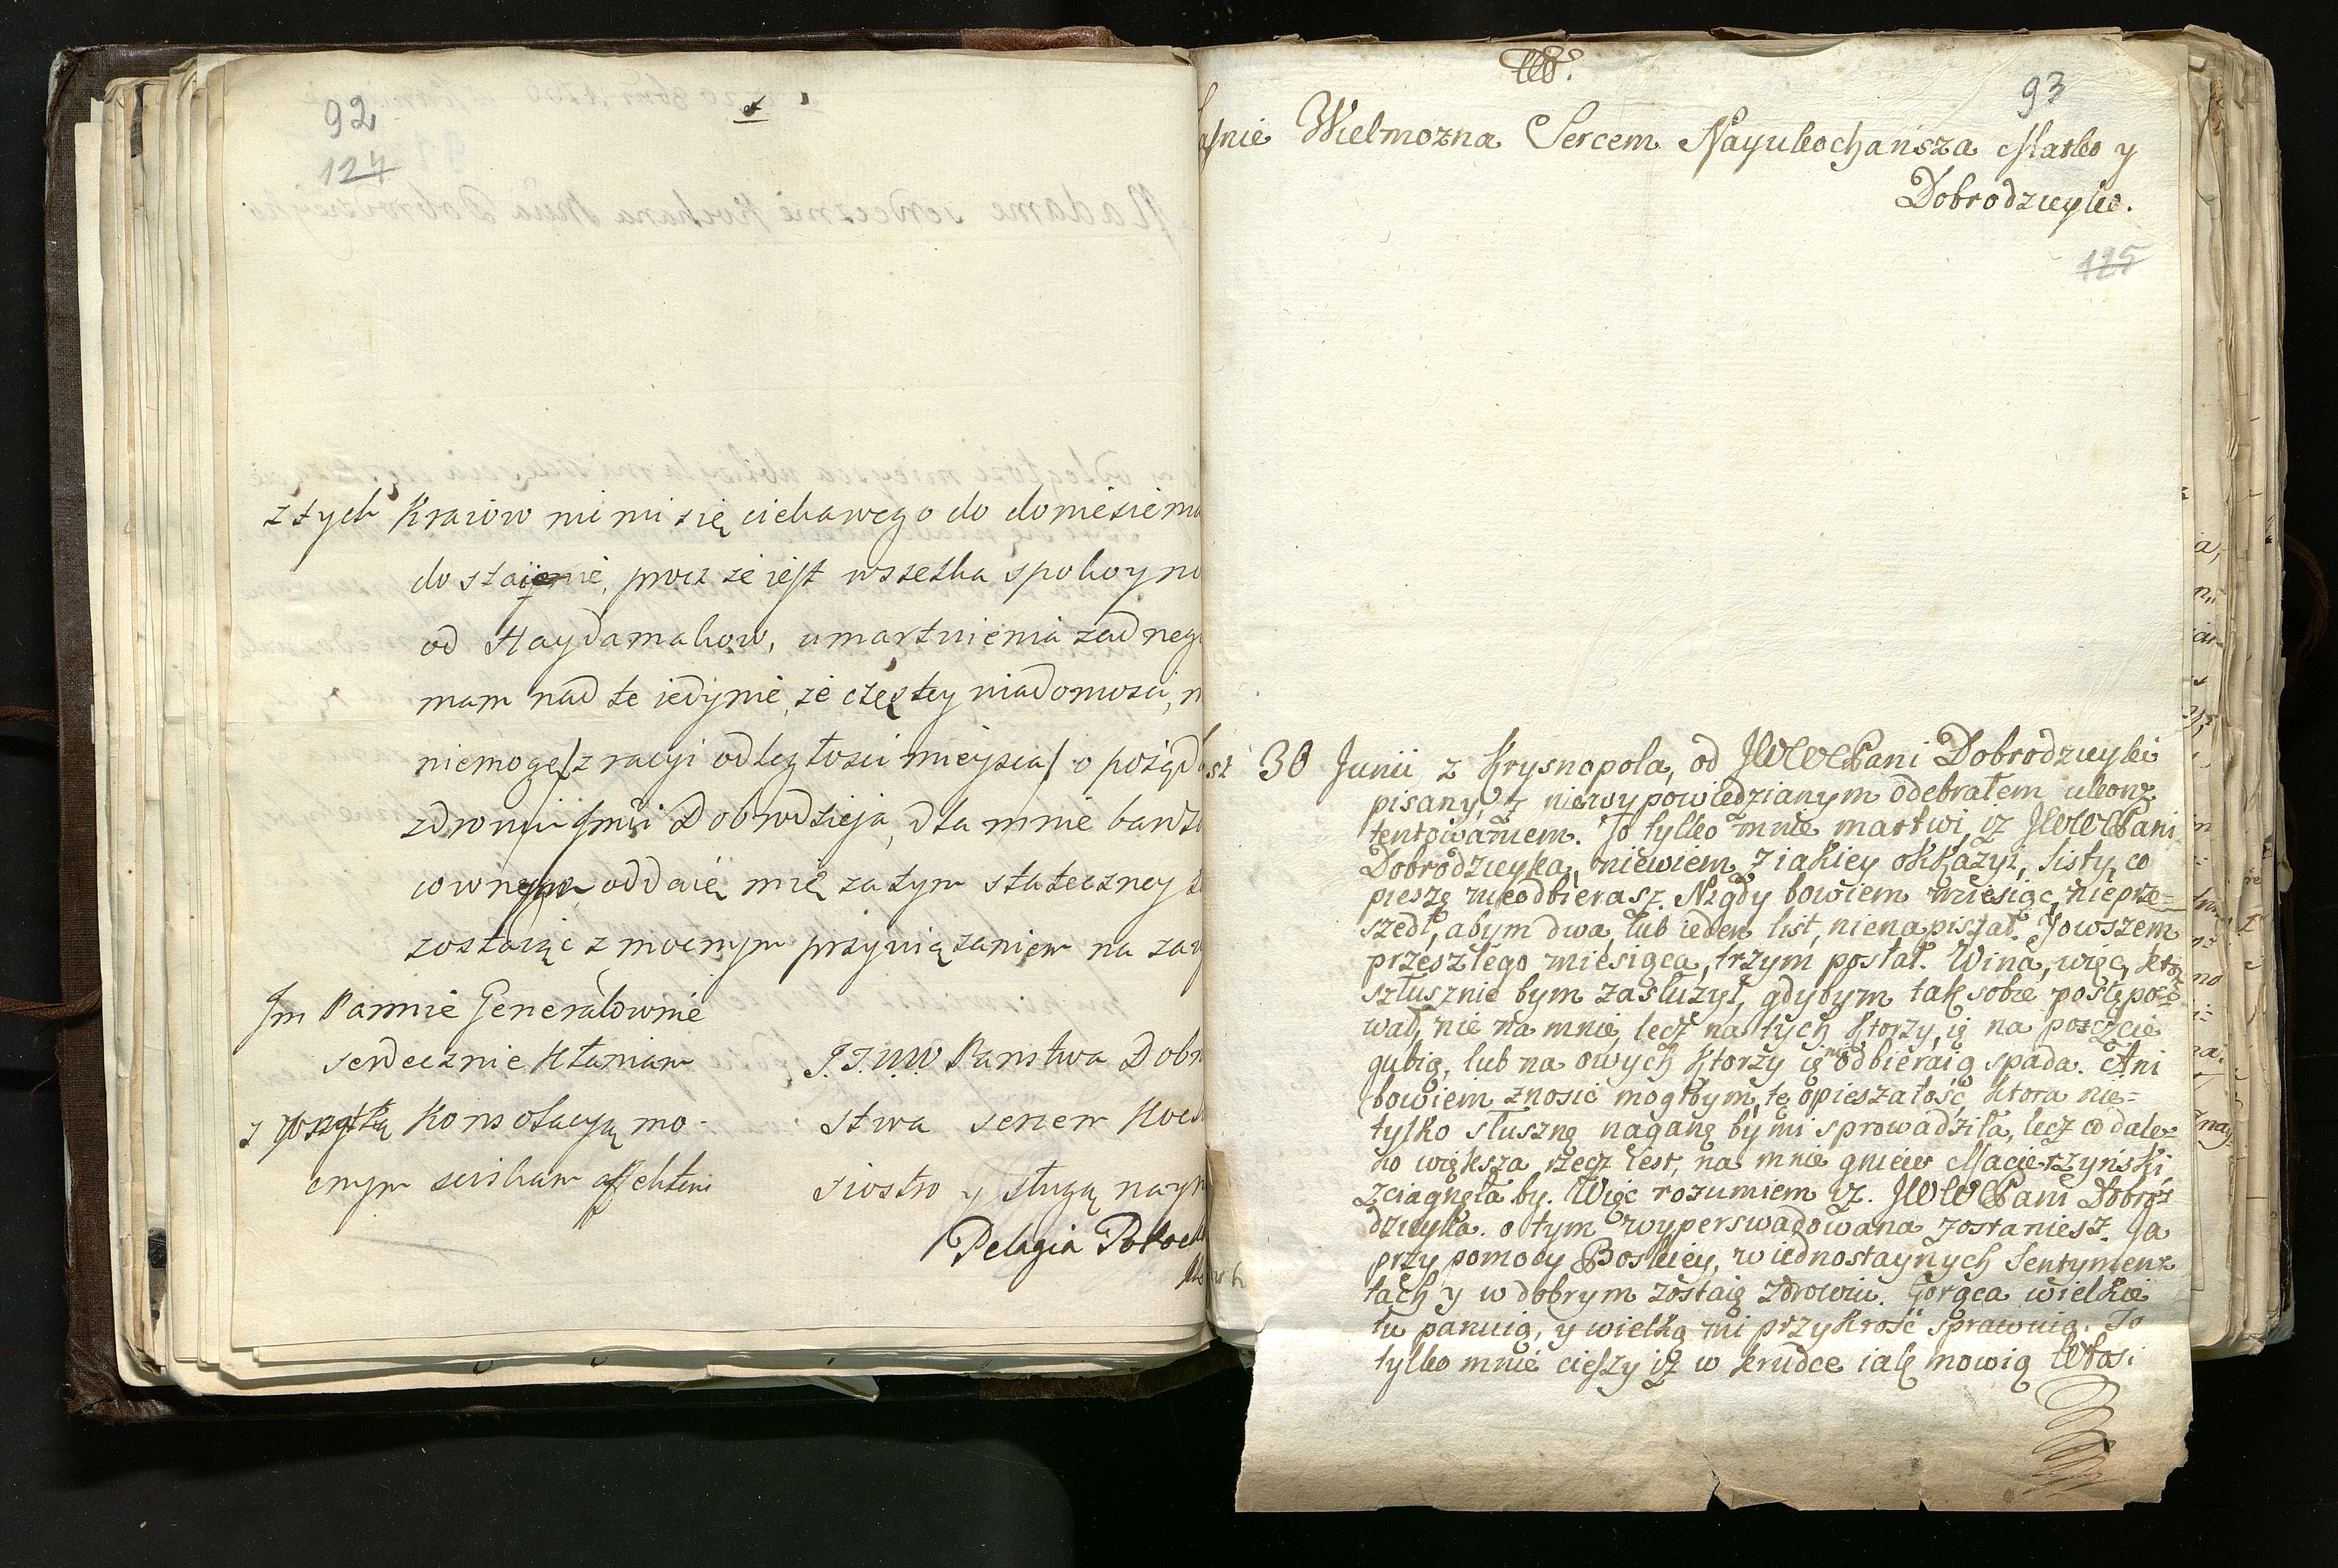 92
124
z tych Kraiow nimi się ciekawego do domiesiem
do staie, procz ze iest wszelka spokoyno
od Haydamakow, umartwienia zadnego
mam nad te iedynie, że częstey wiadomosci, n
niemogę /z racyi odległosci mieysca/ o pożąd
zdrowiu Jmci Dobrodzieja, dla mnie bardz
oddaię mię zatym stateczney
zostaiąc z mocnym przywiązaniem na zaw
Jm Pannie Generałownie
serdecznie kłaniam
z Konsolacyą mo-
cnym sciskam affektem
J.J.W.W Panstwa Dobr
stwa sercem Koch
siostro y sługą nayn
Pelagia Potock
93
asnie Wielmozna Sercem Nayukochańsza Matko y
Dobrodzieyko.
125
st 30 Junii z Krysnopola, od JWWPani Dobrodzieyki
pisany, z niewypowiedzianym odebrałem ukon=
tentowaniem. To tylko mnie martwi iz JWWPani
Dobrodzieyka, niewiem z iakiey okkazyi, listy, co
pieszę nieodbierasz. Nigdy bowiem miesiąc nieprze=
szedł, abym dwa, lub ieden list, nienapisał. Jowszem
przeszłego miesiąca, trzym posłał. Wina, więc, ktor
szłusznie bym zasłużył, gdybym tak sobie postępo=
wał, nie na mnie, lecz na tych ktorzy, ię na poszcie
gubią, lub na owych ktorży ię nie odbieraią spada. Ani
bowiem znosić mogłbym, tę opieszałość, ktora nie=
tylko słuszną naganę by mi sprowadziła, lecz co dale=
ko większa rzecz iest, na mnie gniew Macierzyński
zciągnęła by. Więc rozumiem iż. JWWPani Dobro=
dzieyka. o tym wyperswadowana zostaniesz. Ja
przy pomocy Boskiey, w iednostaynych Sentymen=
tach y w dobrym zostaię zdrowiu. Gorąca wielkie
tu panuią, y wielką mi przykrość sprawuią. To
tylko mnie cieszy iż w krudce iak mowią Włosi